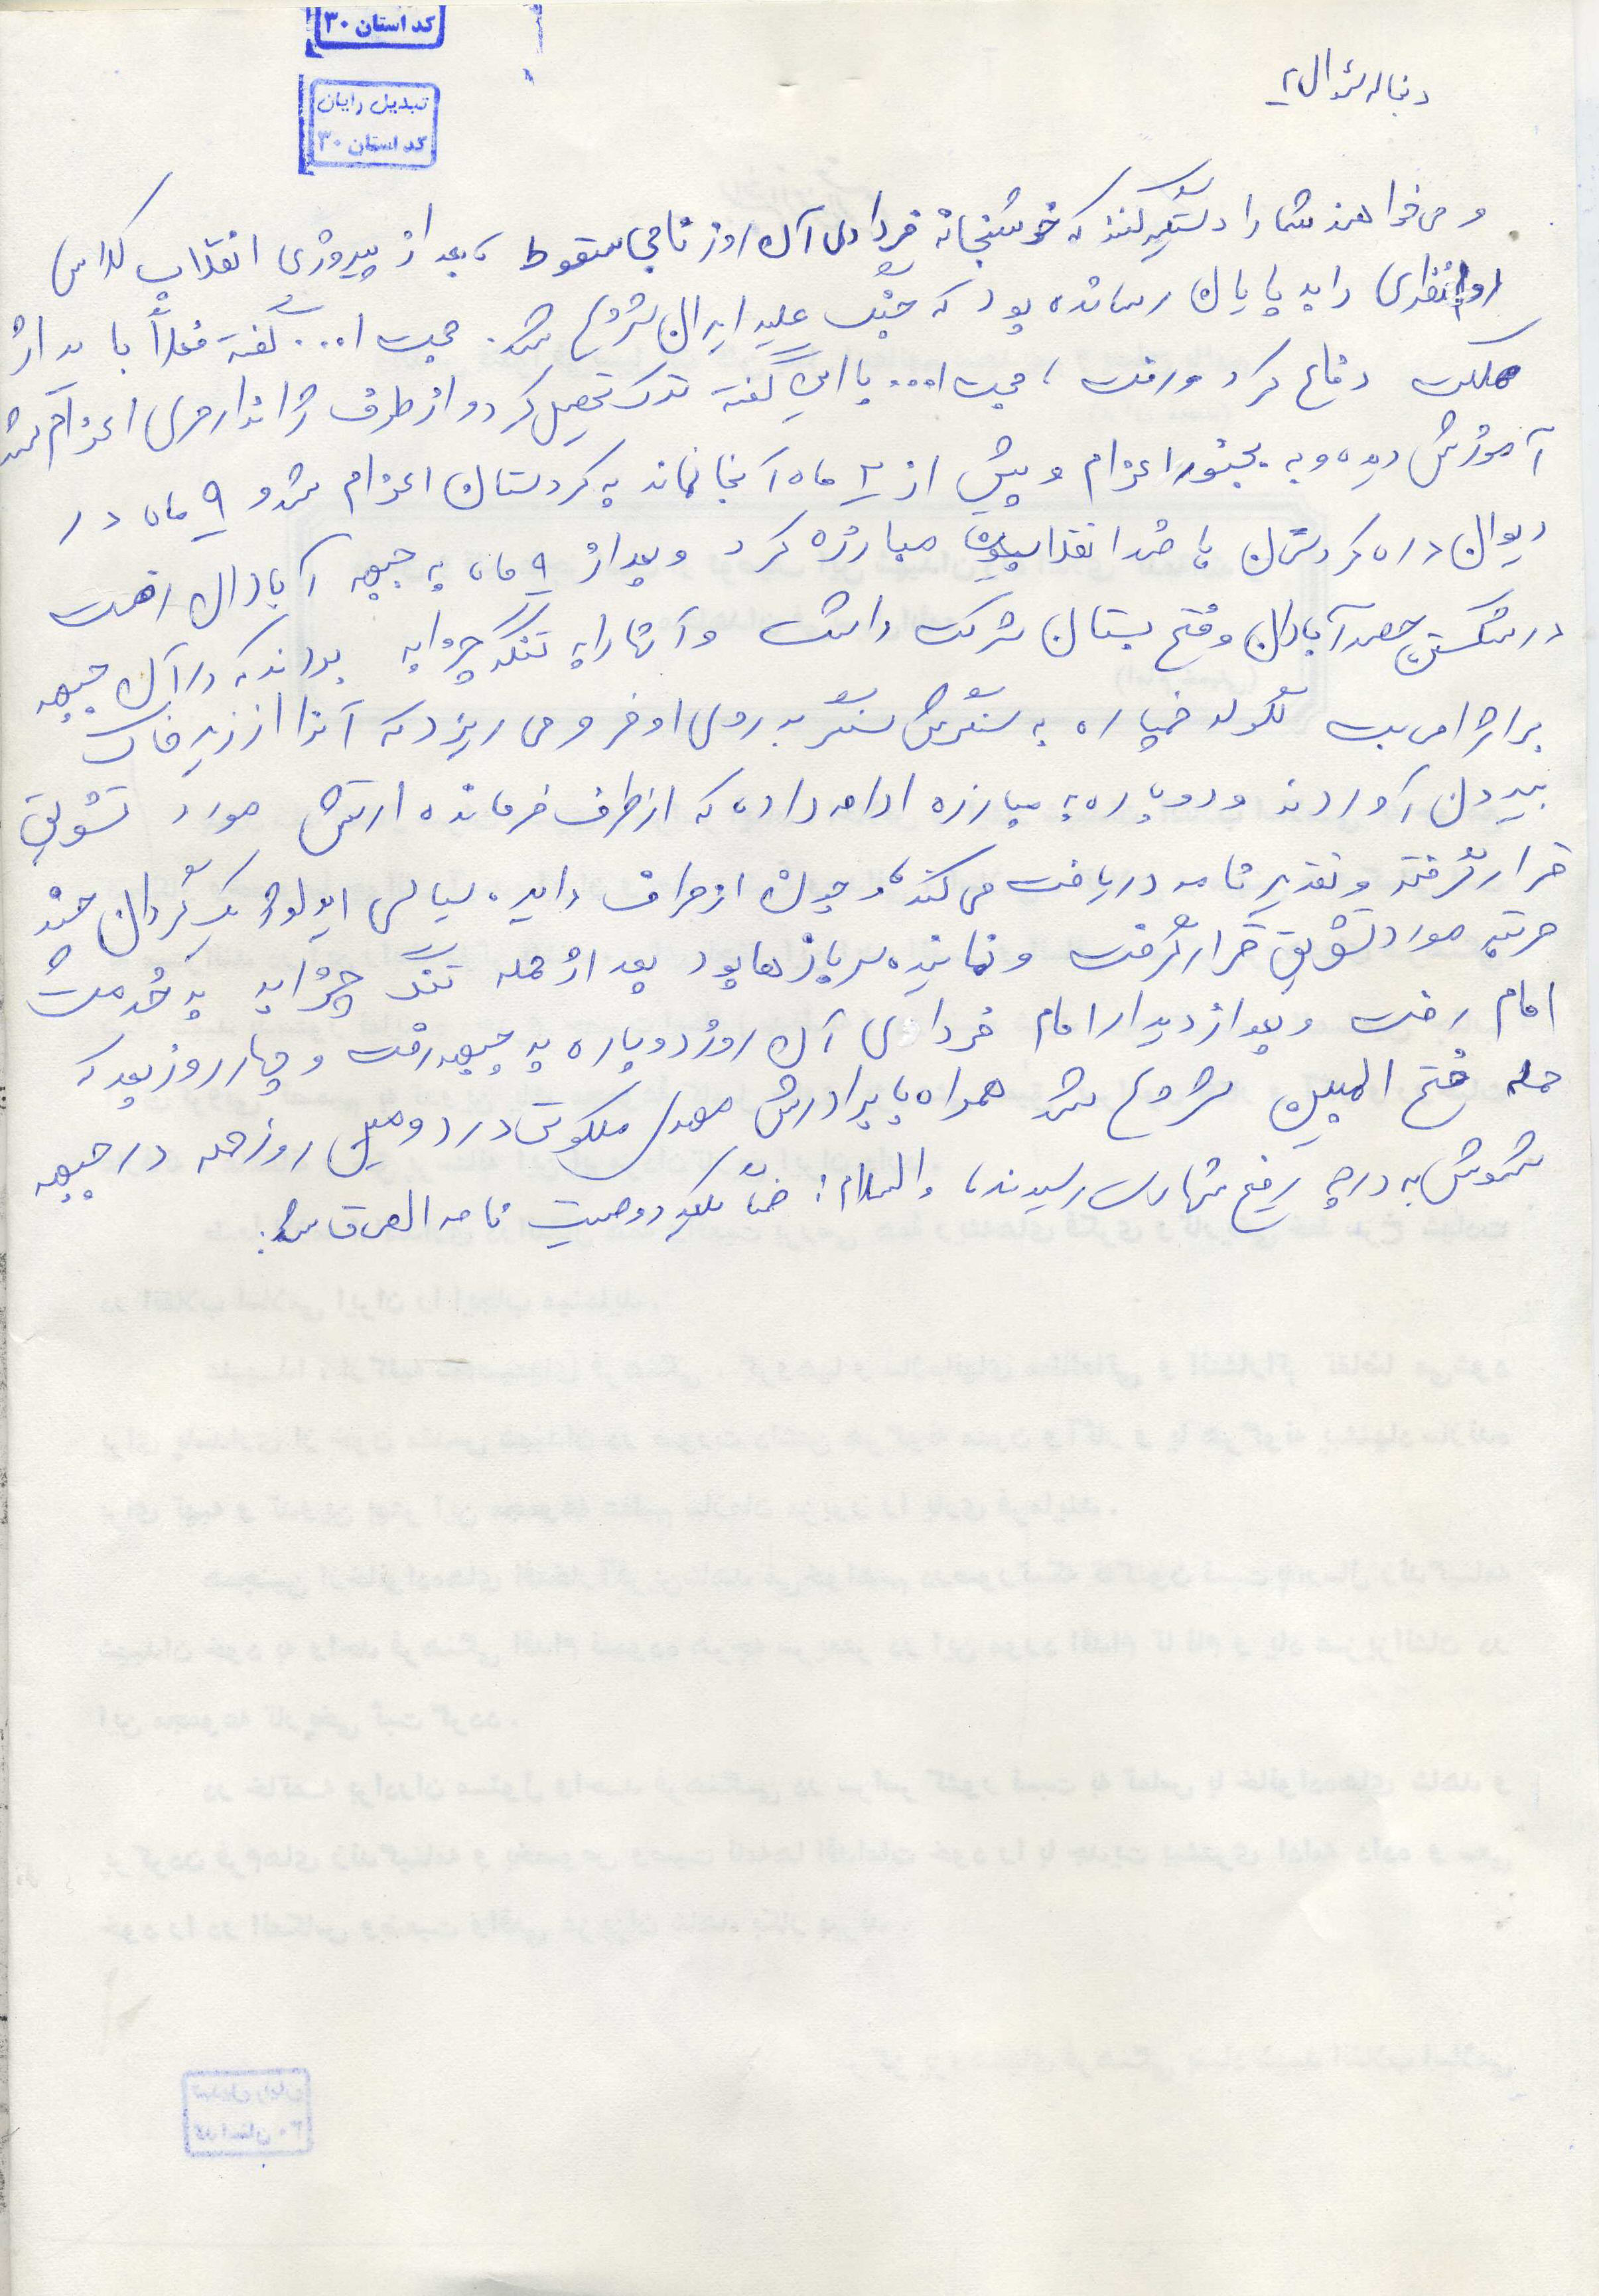 کد استان ۳۰
تبدیل رایان
کد استان ۳۰
دنباله سؤال ۲
و می خواهند شما را دستگیر کنند که خوشبختانه فردای آن روز ناجی سقوط، بعد از پیروزی انقلاب کلاس
را به پایان رسانده بود که جنگ علیه ایران شروع شد. محبت ا... گفته فعلاً باید از
مملکت دفاع کرد و رفت، محبت ا... با این گفته ترک تحصیل کرد و از طرف ژاندارمری اعزام شد
آموزش دیده و به بجنورد اعزام و پیش از ۲ ماه آنجا نماند به کردستان اعزام شد و ۹ ماه در
دیوان دره کردستان با ضد انقلابیون مبارزه کرد و بعد از ۹ ماه به جبهه آبادان رفت
در شکستن حصر آبادان و فتح بستان شرکت داشت و آنها را به تنگه چزابه بردند که در آن جبهه
براثر اصابت گلوله خمپاره به سنگرش سنگر به روی او فرو می ریزد که آنرا از زیر خاک
بیرون آوردند و دوباره به مبارزه ادامه داده که از طرف فرمانده ارتش مورد تشویق
قرار گرفته و تقدیر نامه دریافت می کند، و چون از طرف دایره سیاسی ایدلوژیک گردان چند
مرتبه مورد تشویق قرار گرفت و نماینده سربازها بود بعد از حمله تنگ چزابه به خدمت
امام رفت و بعد از دیدار امام فردای آن روز دوباره به جبهه رفت و چهار روز بعد که
حمله فتح المبین شروع شد همراه با برادرش مهدی ملکوتی در دومین روز حمله در جبهه
شوش به درجه رفیع شهادت رسیدند، والسلام: ضمناً وصیت نامه الصاق شد.
تبدیل رایان
کد استان ۳۰